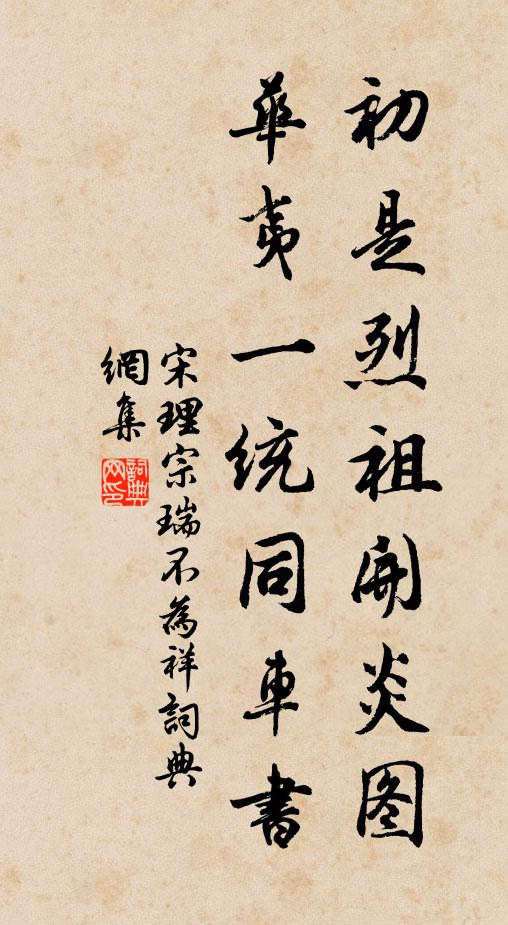 初是烈祖开炎图
華夷一统同車書
宋理宗瑞不為祥詞典
網集
詞典网印